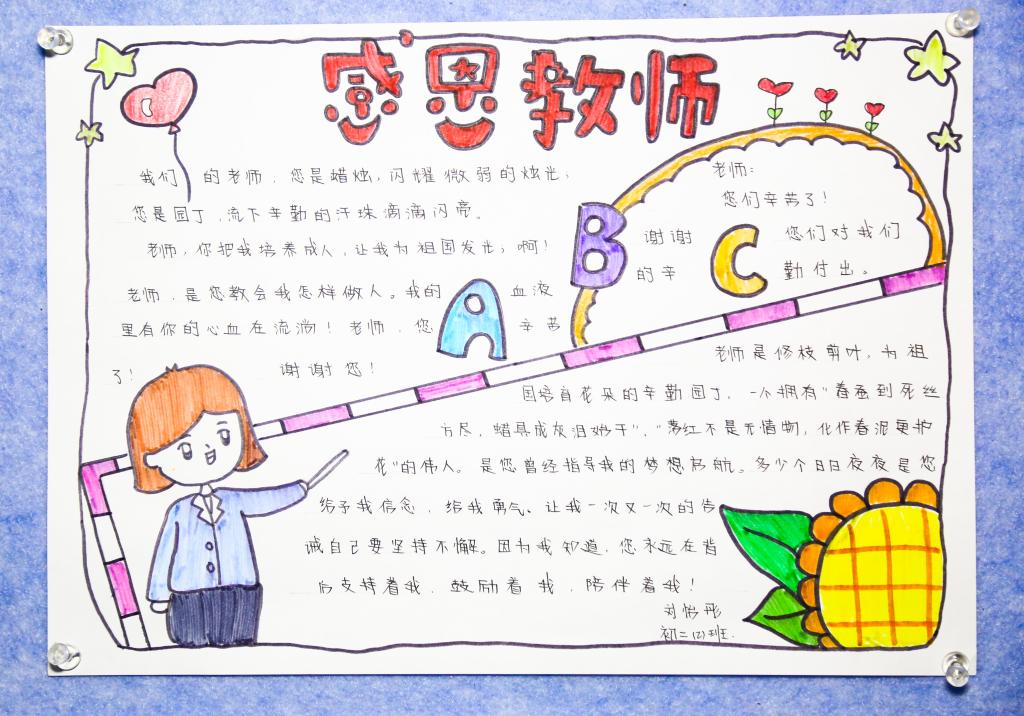 感恩教师
我们的老师，您是蜡烛，闪耀微弱的烛光；
您是园丁，流下辛勤的汗珠滴滴闪亮。
老师，你把我培养成人，让我为祖国发光；啊！
老师，是您教会我怎样做人。我的血液
里有你的心血在流淌！老师，您辛苦
了！谢谢您！
A
B
C
老师：
您们辛苦了！
谢谢您们对我们
的辛勤付出。
老师是修枝剪叶，为祖
国培育花朵的辛勤园丁，一个拥有"春蚕到死丝
方尽，蜡具成灰泪始干"，"落红不是无情物，化作春泥更护
花"的伟人。是您曾经指导我的梦想启航。多少个日日夜夜是您
给予我信念，给我勇气、让我一次又一次的告
诫自己要坚持不懈。因为我知道，您永远在背
后支持着我，鼓励着我，陪伴着我！
刘怡彤
初二(2)班.